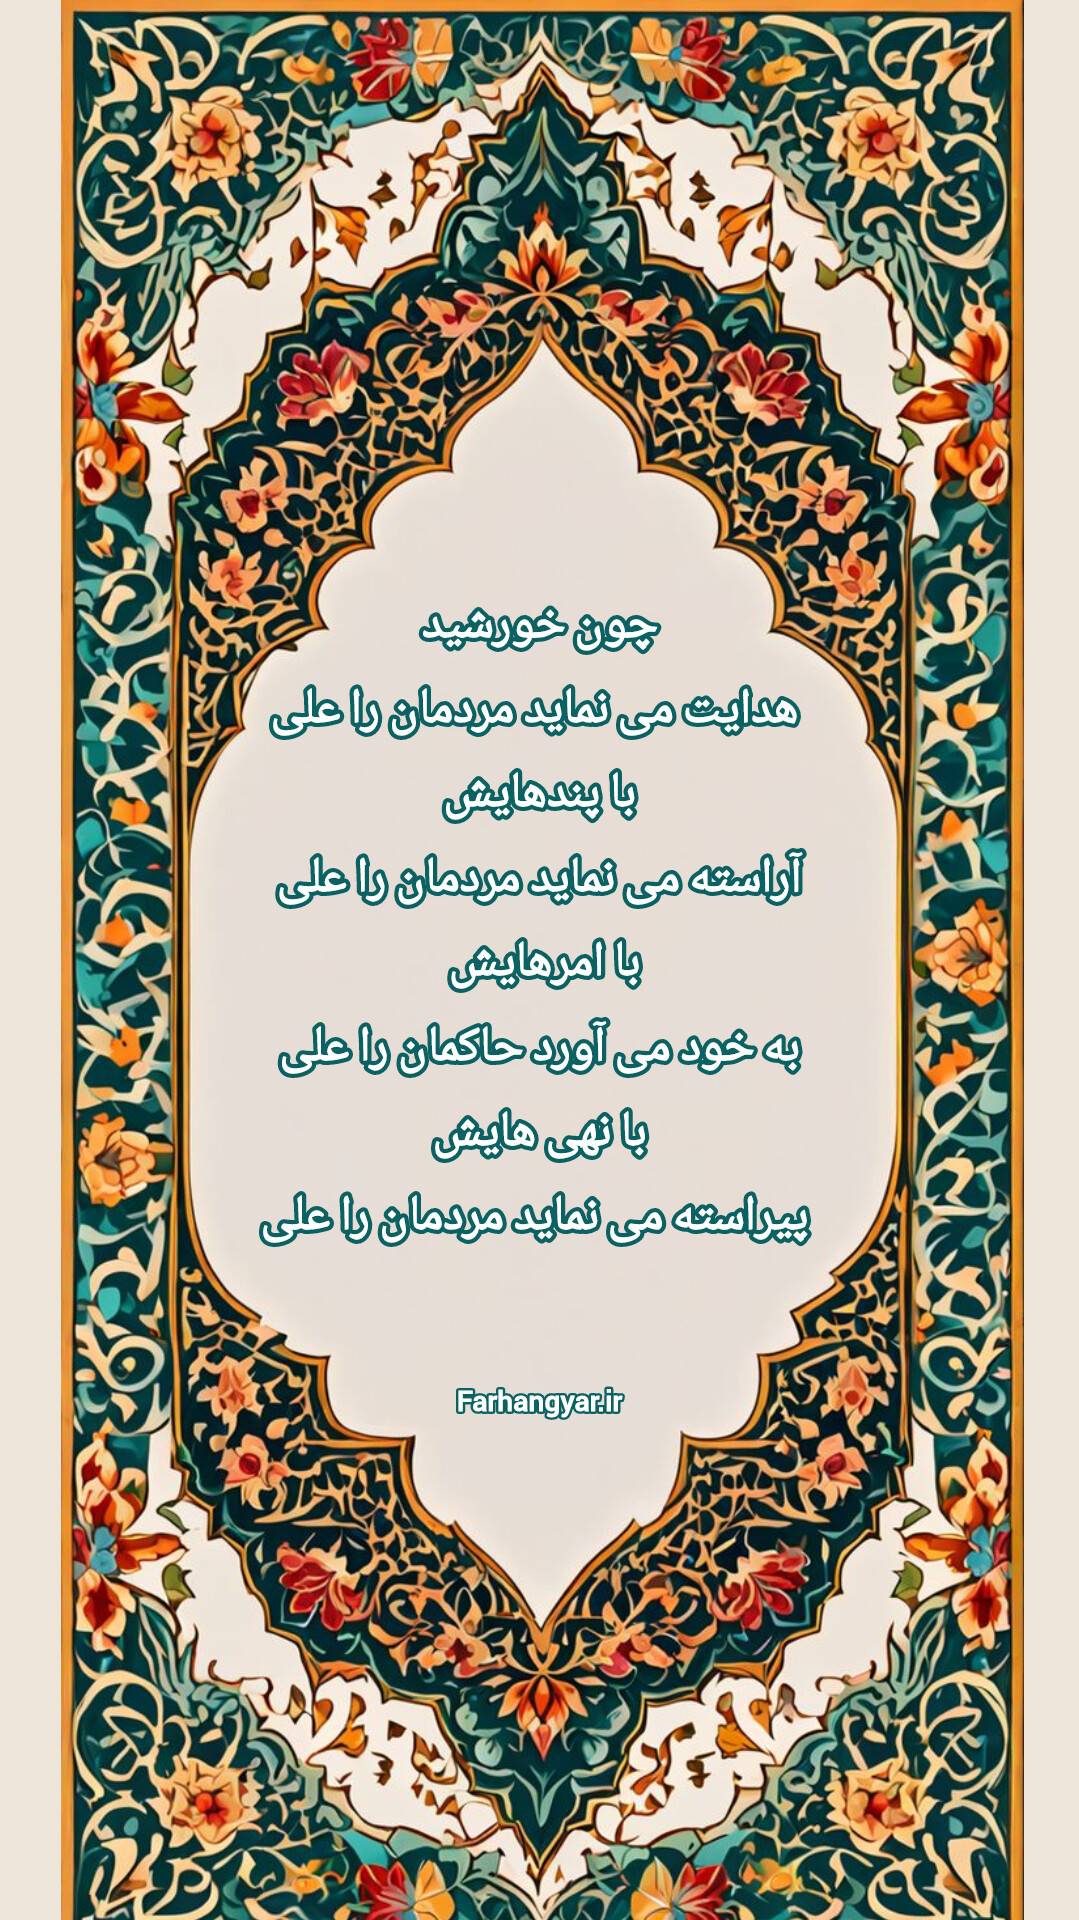 چون خورشید
هدایت می نماید مردمان را علی
با پندهایش
آراسته می نماید مردمان را علی
با امرهایش
به خود می آورد حاکمان را علی
با نهی هایش
پیراسته می نماید مردمان را علی
Farhangyar.ir